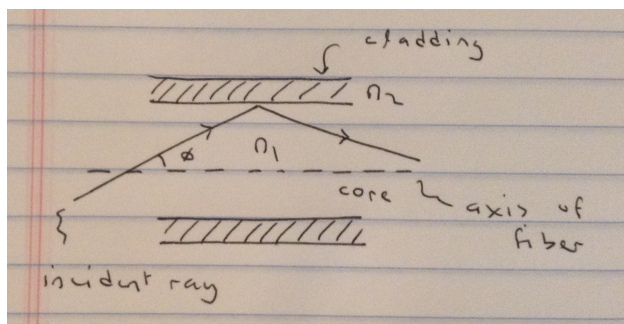 cladding
n2
ø
n1
core
axis of
fiber
incident ray